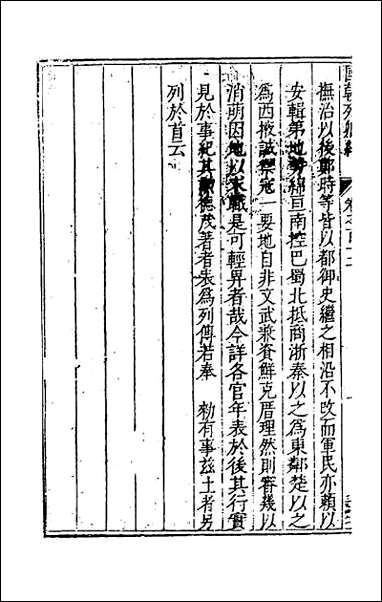 國朝列卿紀
撫治以後鄭時等皆以都御史繼之相沿不改而軍民亦賴以
安輯第地勢綿亘南控巴蜀北抵商浙秦以之為東鄰楚以之
為西掖誠禦冦一要地自非文武兼資鮮克厝理然則審幾以
消萌因地以求職是可輕畀者哉今詳各官年表於後其行實
見於事紀其勳德茂著者表為列傳若奉 勑有事茲土者另
列於首云